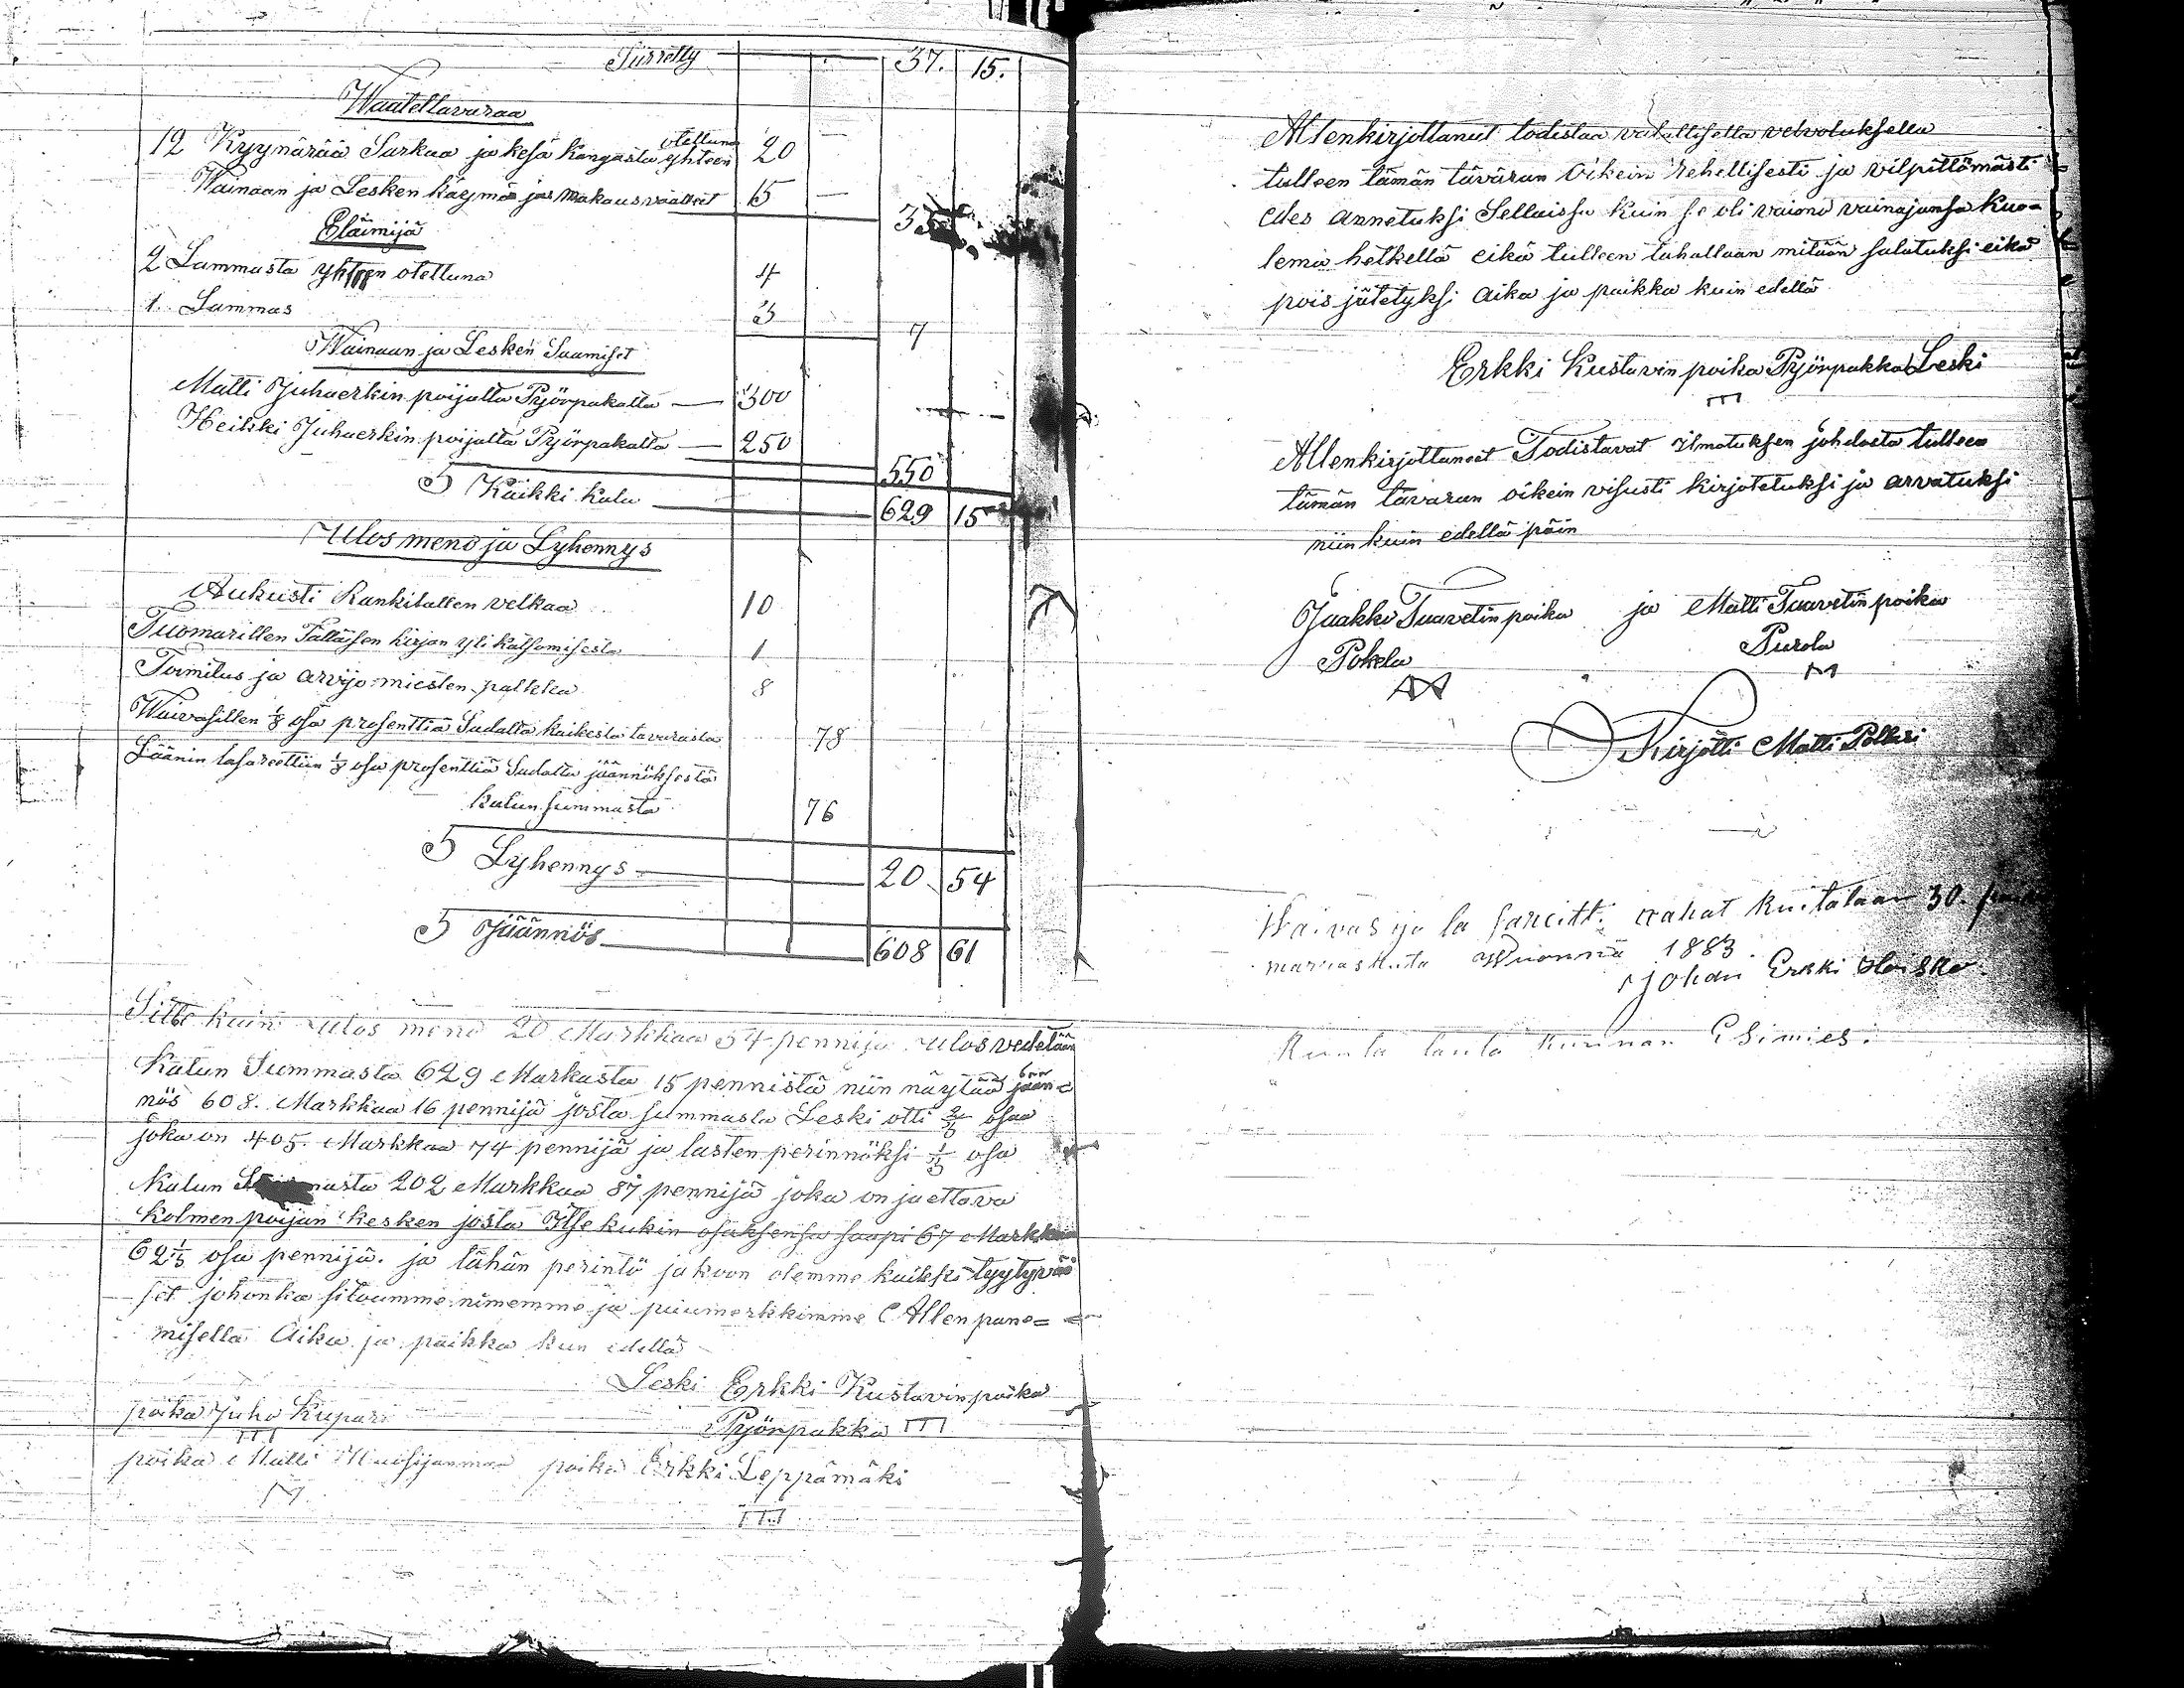 Siirretty — 37. 15.
Waatettavaraa
12 Kyynärää Sarkaa ja kesä kangasta otettuna yhteen 20 —
Wainaan ja Lesken käymä ja makausvaatteet 15 —
35
Eläimijä
2 Lammasta yhteen otettuna 4
1. Lammas 3
7
Wainaan ja Lesken Saamiset
Matti Juhaerkin poijalta Pyörpakalta — 300
Heikki Juhaerkin poijalta Pyörpakalta — 250
550
S Kaikki kalu — 629 15
Ulos meno ja Lyhennys
Aukusti Rankilallen velkaa 10
Tuomarillen Tälläisen kirjan yli katsomisesta 1
Toimitus ja arvijo miesten palkka 8
Waivasillen 1/8 osa prosenttia Sadalta kaikesta tavarasta 78
Läänin lasareettiin 1/8 osa prosenttia Sadalta jäännöksestä
kalun summasta 76
S Lyhennys — 20. 54
S Jäännös — 608 61
Sitte kuin ulos meno 20 Markkaa 54 pennija ulos vedetään
Kalun Summasta 629 Markasta 15 pennistä niin näytää jään=
nös 608. Markkaa 16 pennijä josta summasta Leski otti 2/3 osaa
joka on 405. Markkaa 74 pennijä ja lasten perinnöksi 1/3 osa
Kalun 202 Markkaa 87 pennijä joka on jaettava
Kolmen poijan kesken josta Itse kukin osaksensa saapi 67 Markkaa
62 1/3 osa pennijä. ja tähän perintö jakoon olemme kaikki tyytyväi
set johonka sitoumme nimemme ja puumerkkimme Allen pane=
misella Aika ja paikka kun edellä
Leski Erkki Kustavinpoika
Pyörpakka
poika Juho Kupari
poika Matti poika Erkki Leppämäki
Allenkirjottanut todistaa valallisella velvotuksella
tulleen tämän tavaran Oikein rehellisesti ja vilpittömästi
edes annetuksi Sellaissa kuin se oli vaimo vainajansa kuo=
lema hetkellä eikä tulleen tahallaan mitään salatuksi eikä
pois jätetyksi Aika ja paikka kuin edellä
Erkki Kustavin poika Pyörpakka Leski
Allenkirjottaneet Todistavat ilmotuksen johdosta tulleen
tämän tavaran oikein visusti kirjotetuksi ja arvatuksi
niin kuin edellä päin
Jaakko Taavetin poika ja Matti Taavetin poika
Pokela Purola
Kirjotti Matti Pollari
Waivas ja la sareitt. rahat kuitataan 30. päivä
marraskuta Wuonna 1883.
Johan Erkki
Kunta lauta kunnan Esimies.